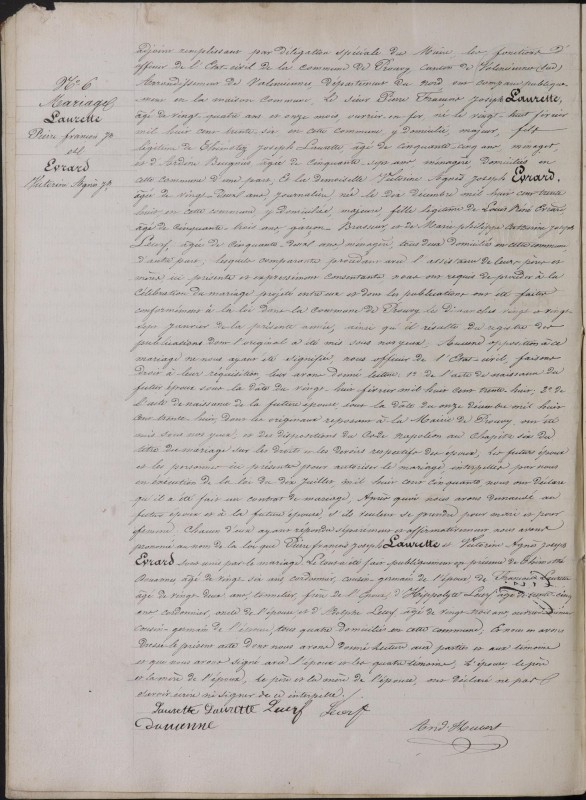 N° 6
Mariage
Laurette
Pierre françois Jph
et
Evrard
Victorine Agnès Jph
adjoint remplissant par délégation spéciale du Maire, les fonctions d'
officier de l'Etat-civil de la commune de Prouvy, canton de Valenciennes (Sud)
Arrondissement de Valenciennes, département du Nord ont comparu publique-
ment en la maison commune, Le sieur Pierre François Joseph Laurette,
âgé de vingt quatre ans et onze mois ouvrier en fer, né le vingt huit février
mil huit cent trente six en cette commune, y domicilié, majeur, fils
légitime de Joseph Laurette, âgé de cinquante cinq ans ménager,
et d' âgée de cinquante sept ans ménagère domiciliés en
cette commune d'une part, Et la demoiselle Victorine Agnès Joseph Evrard,
âgée de vingt-deux ans, journalière née le dix décembre mil huit cent trente
huit en cette commune y domiciliée, majeure, fille légitime de Louis Evrard,
âgé de cinquante trois ans garçon-Brasseur, et de Marie philippe Joseph
Lecerf, âgée de cinquante-deux ans, ménagère, tous deux domiciliés en cette commune,
d'autre part, lesquels comparants procédant avec l'assistance de leurs pères et
mères ici présents et expressément consentants nous ont requis de procéder à la
célébration du mariage projeté entre eux et dont les publications ont été faites
conformément à la loi dans la commune de Prouvy les Dimanches vingt et vingt
sept janvier de la présente année, ainsi qu'il résulte du registre des
publications dont l'original a été mis sous nos yeux. Aucune opposition à ce
mariage ne nous ayant été signifiée, nous officier de l'Etat-civil, faisant
droit à leur réquisition, leur avons donné lecture 1° de l'acte de naissance du
futur époux sous la date du vingt-huit février mil huit cent trente 2° de
l'acte de naissance de la future épouse, sous la date du onze décembre mil huit
cent trente-huit, dont les originaux reposant à la Mairie de Prouvy, ont été
mis sous nos yeux, et des dispositions du Code Napoléon au Chapitre six du
titre du mariage sur les droits et les devoirs respectifs des époux, Les futurs époux
et les personnes ici présentes pour autoriser le mariage, interpellés par nous
en exécution de la loi du dix juillet, mil huit cent cinquante, nous ont déclaré
qu'il a été fait un contrat de mariage, Après quoi nous avons demandé au
futur époux et à la future épouse s'ils veulent se prendre pour mari et pour
femme. Chacun d'eux ayant répondu séparément et affirmativement nous avons
prononcé au nom de la loi que Pierre françois Joseph Laurette et Victorine Agnès Joseph
Evrard sont unis par le mariage. Le tout a été fait publiquement en présence de
âgé de vingt-six ans cordonnier, cousin-germain de l'époux, de François Laurette
âgé de vingt-deux ans, tonnelier, frère de l'époux, d'Hyppolyte Lecerf âgé de trente-cinq
ans cordonnier, oncle de l'épouse et d' Lecerf, âgé de vingt-trois ans,
cousin-germain de l'épouse, tous quatre domiciliés en cette commune. Et nous en avons
dressé le présent acte dont nous avons donné lecture aux parties et aux témoins
et que nous avons signé avec l'époux et les quatre témoins. L'épouse le père
et la mère de l'époux, le père et la mère de l'épouse, ont déclaré ne pas
savoir écrire ni signer de ce interpellés.
Laurette Laurette Lecerf Lecerf